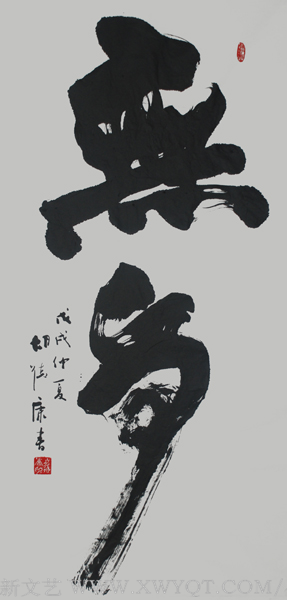 無争
戊戌仲夏
康書
新文艺 WWW.XWYQT.COM/